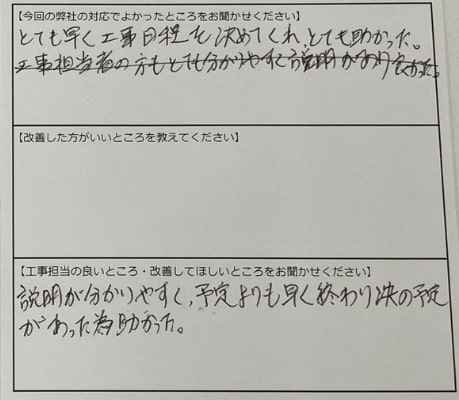 【今回の弊社の対応でよかったところをお聞かせください】
とても早く工事日程を決めてくれ、とても助かった。
工事担当者の方もとても分かりやすく説明があり良かった。
【改善した方がいいところを教えてください】
【工事担当の良いところ・改善してほしいところをお聞かせください】
説明が分かりやすく、予定よりも早く終わり次の予定
があった為助かった。